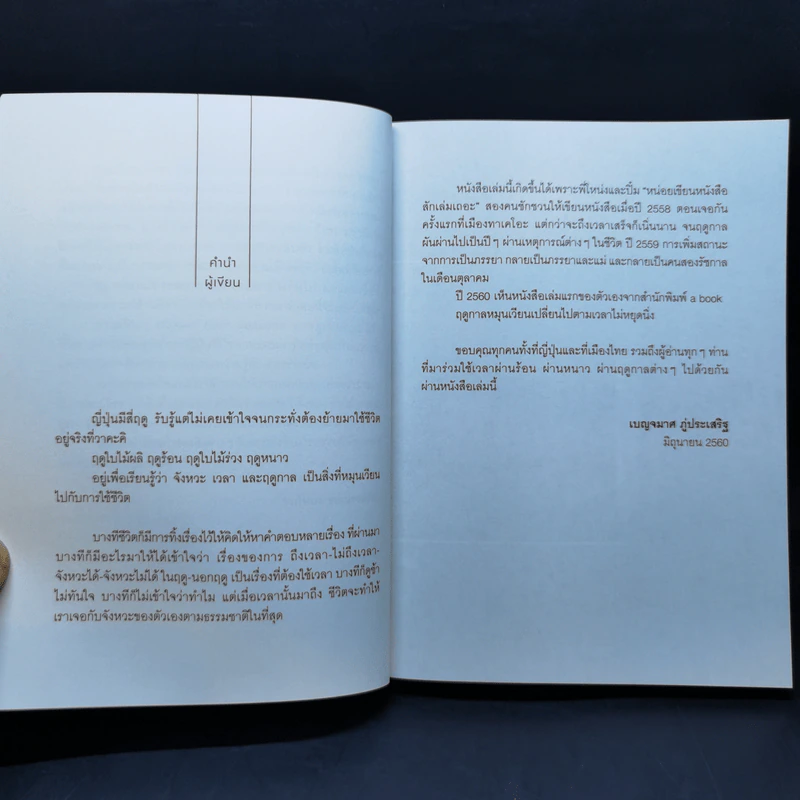 คำนำ
ผู้เขียน
ญี่ปุ่นมีสี่ฤดู รับรู้แต่ไม่เคยเข้าใจจนกระทั่งต้องย้ายมาใช้ชีวิต
อยู่จริงที่วาคะคิ
ฤดูใบไม้ผลิ ฤดูร้อน ฤดูใบไม้ร่วง ฤดูหนาว
อยู่เพื่อเรียนรู้ว่า จังหวะ เวลา และฤดูกาล เป็นสิ่งที่หมุนเวียน
ไปกับการใช้ชีวิต
บางทีชีวิตก็มีการทิ้งเรื่องไว้ให้คิดให้หาคำตอบหลายเรื่อง ที่ผ่านมา
บางทีก็มีอะไรมาให้ได้เข้าใจว่า เรื่องของการ ถึงเวลา-ไม่ถึงเวลา-
จังหวะได้-จังหวะไม่ได้ ในฤดู-นอกฤดู เป็นเรื่องที่ต้องใช้เวลา บางทีก็ดูช้า
ไม่ทันใจ บางทีก็ไม่เข้าใจว่าทำไม แต่เมื่อเวลานั้นมาถึง ชีวิตจะทำให้
เราเจอกับจังหวะของตัวเองตามธรรมชาติในที่สุด
หนังสือเล่มนี้เกิดขึ้นได้เพราะพี่โหน่งและปิ่ม “หน่อยเขียนหนังสือ
สักเล่มเถอะ” สองคนชักชวนให้เขียนหนังสือเมื่อปี 2558 ตอนเจอกัน
ครั้งแรกที่เมืองทาเคโอะ แต่กว่าจะถึงเวลาเสร็จก็เนิ่นนาน จนฤดูกาล
ผันผ่านไปเป็นปีๆ ผ่านเหตุการณ์ต่างๆ ในชีวิต ปี 2559 การเพิ่มสถานะ
จากการเป็นภรรยา กลายเป็นภรรยาและแม่ และกลายเป็นคนสองรัชกาล
ในเดือนตุลาคม
ปี 2560 เห็นหนังสือเล่มแรกของตัวเองจากสำนักพิมพ์ a book
ฤดูกาลหมุนเวียนเปลี่ยนไปตามเวลาไม่หยุดนิ่ง
ขอบคุณทุกคนทั้งที่ญี่ปุ่นและที่เมืองไทย รวมถึงผู้อ่านทุกๆ ท่าน
ที่มาร่วมใช้เวลาผ่านร้อน ผ่านหนาว ผ่านฤดูกาลต่างๆ ไปด้วยกัน
ผ่านหนังสือเล่มนี้
เบญจมาศ ภู่ประเสริฐ
มิถุนายน 2560